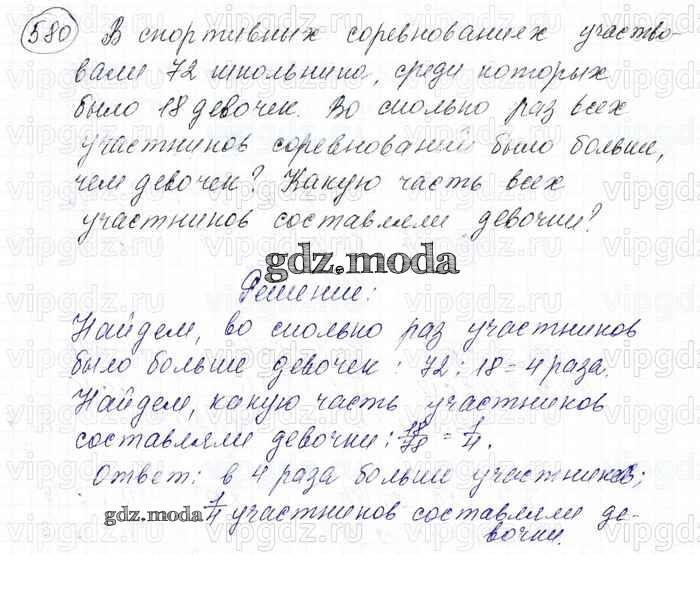 580 В спортивных соревнованиях участво-
вали 72 школьника, среди которых
было 18 девочек. Во сколько раз всех
участников соревнований было больше,
чем девочек? Какую часть всех
участников составляли девочки?
gdz.moda
Решение:
Найдем, во сколько раз участников
было больше девочек: 72 : 18 = 4 раза.
Найдем, какую часть участников
составляли девочки: 18/78 = 1/4.
Ответ: в 4 раза больше участников;
gdz.moda 1/4 участников составляли де-
вочки.